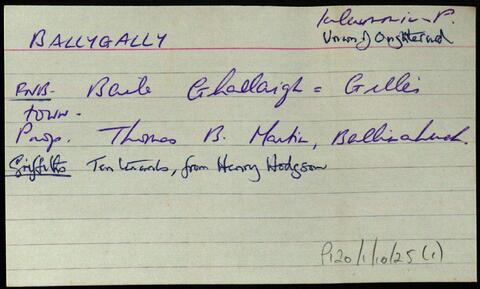 BALLYGALLY
Kilcummin P.
Union of Oughterard
FNB. Baile Ghallaigh = Gillis
town.
Prop. Thomas B. Martin, Ballinahinch.
Griffiths Ten tenants, from Henry Hodgson
P120/1/10/25(1)